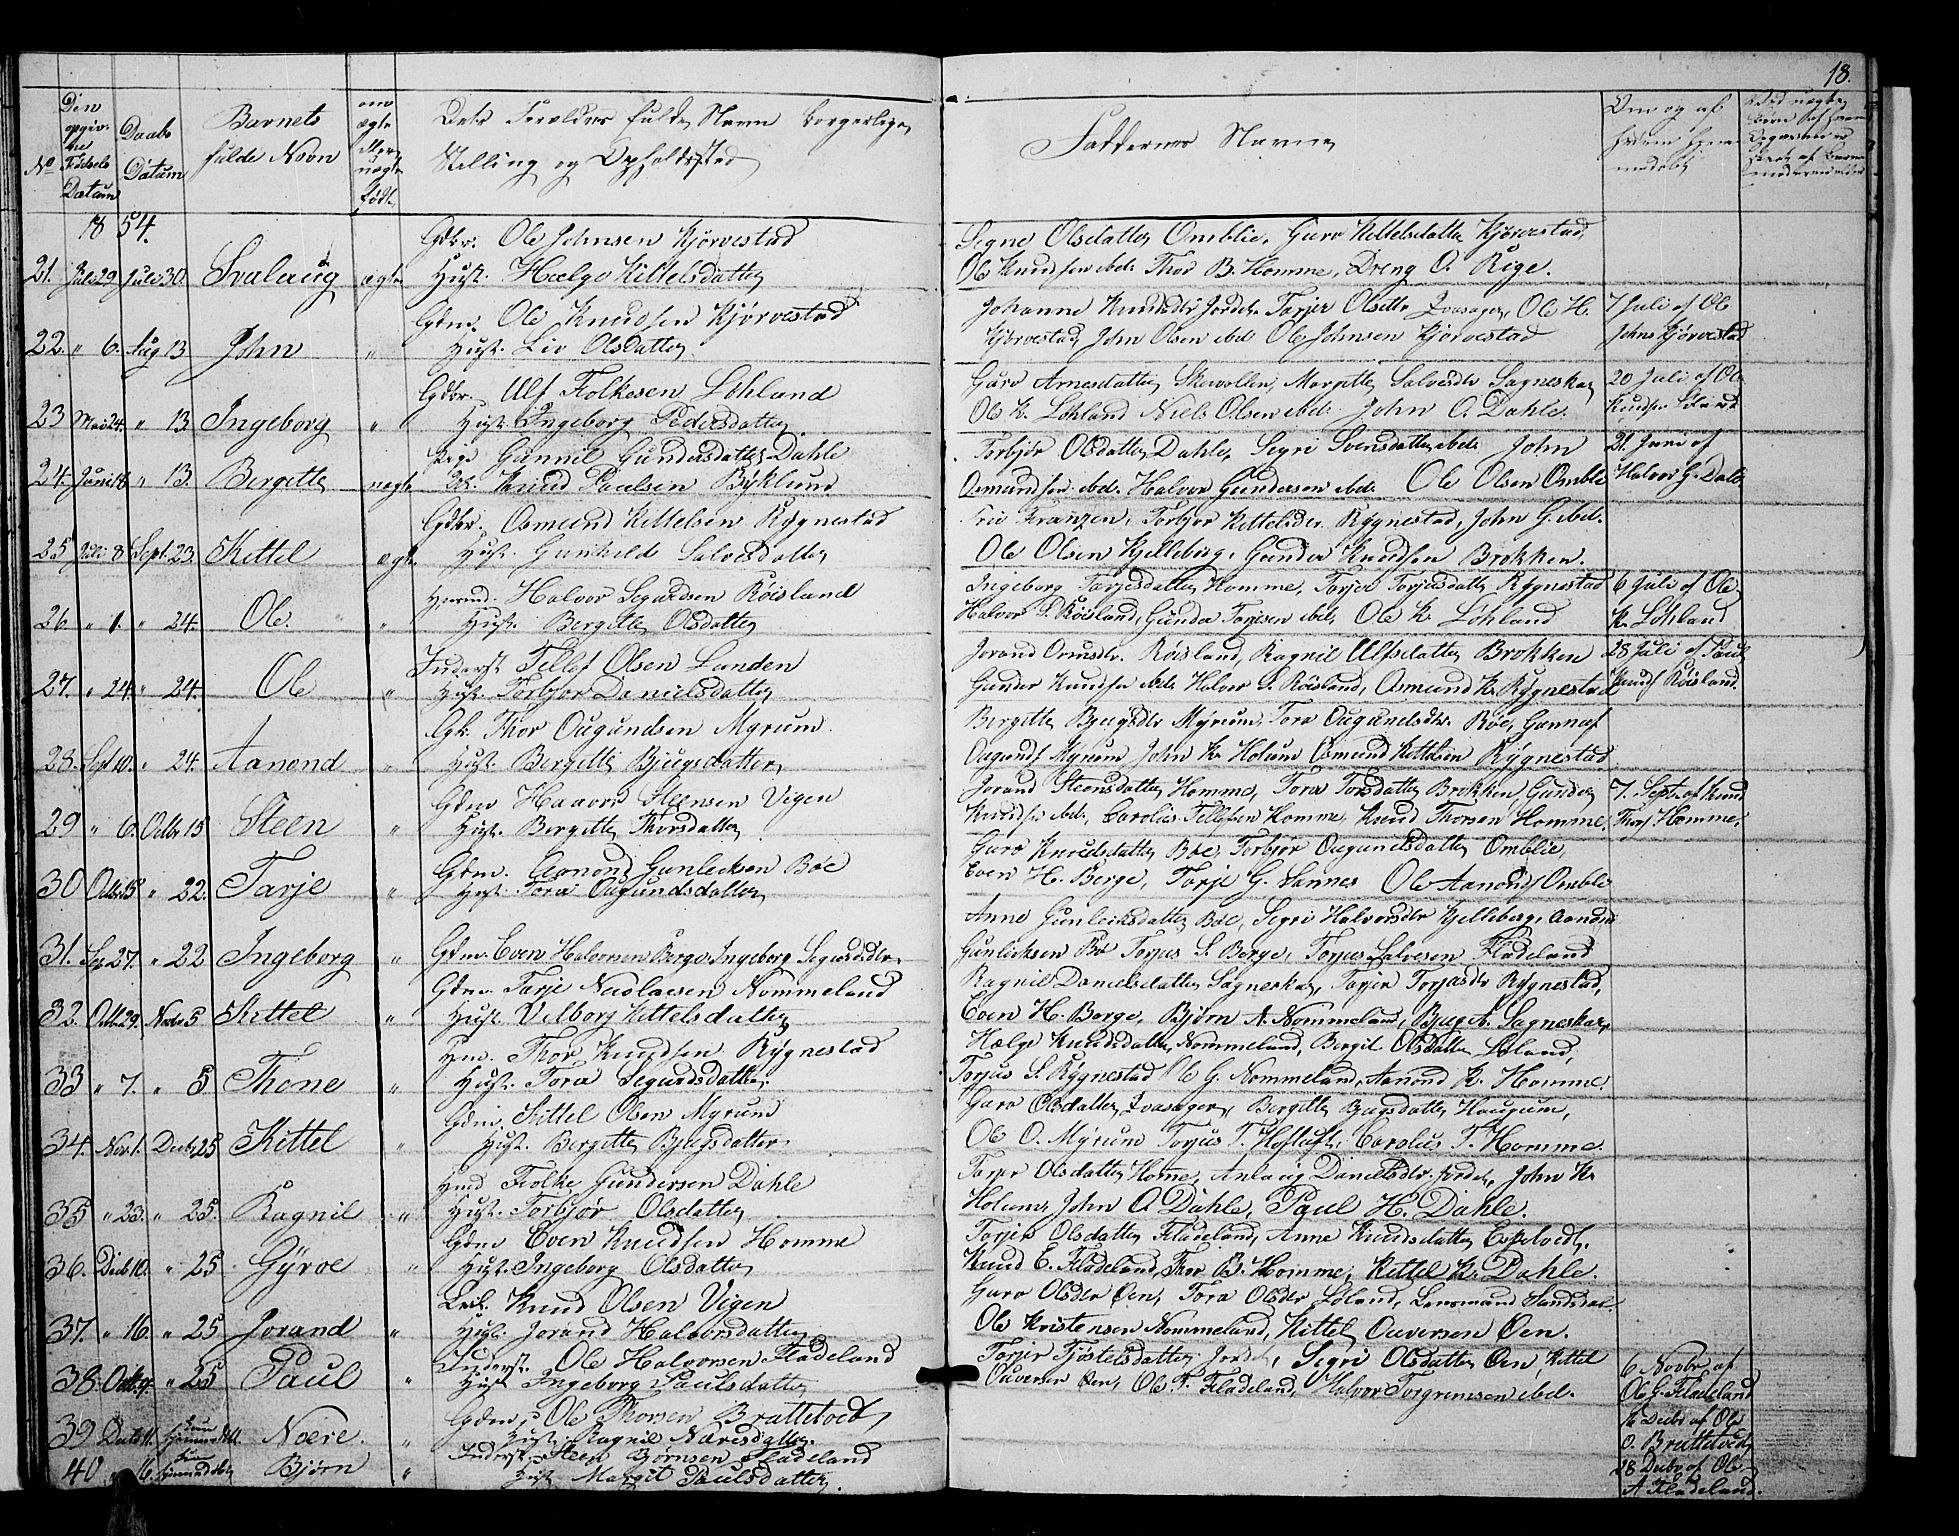 18.
No
Den opgivne Fødsels Datum
Daabs Datum
Barnets fulde Navn
om ægte eller uægte født
Dets Forældres fulde Navn Borgerlige
Stilling og Opholdssted
Faddernes Navne
Om og af hvem hjemmedøbt
1854.
21. Juli 29 Juli 30. Svalaug ægte
Gdbr. Ole Johnsen Kjørvestad
Hust. Hælge Kittelsdatter
Signe Olsdatter Omblie, Guro Kittelsdatter Kjørvestad,
Ole Knudsen ibd. Thor B. Homme, Dreng O. Rige.
22. " 6. Aug 13 John "
Gdm. Ole Knudsen Kjørvestad
Hust. Liv Olsdatter
Johanne Knudsdtr Jorden, Tarjer Olsdtr Qvasager, Ole H.
Kjørvestad, John Olsen ibd Ole Johnsen Kjørvestad
7 Juli af Ole
Johns Kjørvestad
23 Mai 24. " 13 Ingeborg "
Gdbr. Ulf Folkesen Löhland
Hust. Ingeborg Pedersdatter
Guro Arnesdatter Margitte Salvesdr Sagneskar
Ole K. Löhland Niels Olsen ibd. John O. Dahle.
20 Juli af Ole
Knudsen
24. Juni 18 " 13. Bergitte uægte
Pige Gunnil Gundersdatter Dahle
Knud Paulsen Byklum
Torbjør Olsdatter Dahle, Segri Svensdatter ibd. John
Osmundsen ibd. Halvor Gundersen ibd. Ole Olsen Omblie
21. Juni af
Halvor G. Dahle
25 Juli 8 Sept. 23. Kittel ægte.
Gdbr. Osmund Kittelsen Rÿgnestad
Hust. Gunhild Salvesdatter
Fru Franzen, Torbjør Kittelsdr. Rÿgnestad, John G. ibd.
Ole Olsen Kjelleberg, Gunder Knudsen Brokken.
26 " 1. " 24. Ole "
Halvor Segurdsen Röisland
Hust. Bergitte Olsdatter
Ingeborg Tarjesdatter Homme, Tarjer Torjusdatter Rÿgnestad
Halvor S. Röisland, Gunder Torjesen ibd, Ole K. Löhland
6 Juli af Ole
K. Löhland
27. " 24. " 24. Ole "
Inderst Tellef Olsen Landen
Hust. Torbjør Danielsdatter
Jorand Ormsdr. Röisland, Ragnil Ulfsdatter Brokken
Gunder Knudsen ibd. Halvor S. Röisland, Osmund K. Rÿgnestad
28 Juli af Paul
Knuds Röisland.
28. Sept 10. " 24. Aanond "
Thor Ougundsen Myrum
Hust. Bergitte Bjugsdatter
Bergitte Bjugsdtr Mÿrum, Tora Ougundsdtr. Bøe, Gunnuf
Ougunds Mÿrum John K. Holum Osmund Kittelsen Rÿgnestad
29 " 6. Octbr 15 Steen "
Gdm Haavor Steensen Vigen
Hust. Bergitte Thorsdatter
Jorand Steensdatter Homme, Tora Torsdatter Brokken, Gunder
Knudsen ibd., Carolius Tellefsen Homme, Knud Thorsen Homme.
7. Sept. af Knud
Thors Homme.
30 Octbr 15 " 22. Tarje "
Gdm. Aanond Gunleiksen Bøe
Hust. Tora Ougundsdatter
Guro Knudsdatter Bøe, Torbjør Ougundsdatter Omblie,
Even H. Berge, Torje G. Sannes Ole Aanonds Omblie
31. Sep 27. " 22 Ingeborg "
Gdm. Even Halvorsen Berge Ingeborg Segurdsdtr
Anne Gunleiksdatter Bøe, Segri Halvorsdr Kjelleberg, Aanond
Gunleiksen Bøe Torjus S. Berge, Torjus Salvesen Flådeland
32. Octbr 29. Novbr 5 Kittel "
Gdm. Tarje Nicolaisen Nommeland
Hust. Vilborg Kittelsdatter
Ragnil Danielsdatter Sagneskar, Tarjer Torjusdr Rÿgnestad,
Even H. Berge, Bjørn N. Nommeland, Bjug A. Sagneskar,
33 " 7. " 5 Thone "
Hm. Thor Knudsen Rÿgnestad
Hust. Tora Segurdsdatter
Hælge Knudsdatter Nommeland, Bergit Olsdatter Løland,
Torjus S. Rÿgnestad Ole G. Nommeland, Aanond K. Homme.
34. Nov. 1. Decbr 25 Kittel "
Gdm. Kittel Olsen Myrum
Hust. Bergitte Bjugsdatter
Guro Olsdatter Qvasager, Bergitte Bjugsdatter Haugum,
Ole O. Mÿrum Torjus T. Hofluft, Carolius T. Homme.
35 " 23. " 25. Ragnil "
Hmd Folke Gundersen Dahle
Hust. Torbjør Olsdatter
Tarjer Olsdatter Home, Anlaug Danielsdr. Jorden, John K.
Holum, John O. Dahle, Paul H. Dahle.
36. Decb 10. " 25 Gÿroe "
Gdm Even Knudsen Homme
Hust. Ingeborg Olsdatter
Torjer Olsdatter Flådeland, Anne Knudsdatter Espetvedt,
Knud E. Flådeland, Thor B. Homme, Kittel K. Dahle.
37. " 16. " 25 Jorand "
Knud Olsen Vigen
Hust. Jorand Halvorsdatter
Guro Olsdtr Øen, Tora Olsdtr Løland, Lensmand Sandsdal
Ole Kristensen Nommeland, Kittel Ouversen Øen.
38. Octbr 9. " 25 Paul "
Inderst. Ole Halvorsen Flådeland
Hust Ingeborg Paulsdatter
Torjer Tjøstelsdatter Jorden, Segri Olsdatter Øen, Kittel
Ouverser Øen, Ole T. Flådeland, Halvor Torgrimsen ibd.
6 Novbr af
Ole G. Flådeland
39 Decbr 11. kun hjemmedøbt Noere. "
Gdm. Ole Thorsen Brattetvedt
Hust. Ragnil Næresdatter
16 Decbr af Ole
O. Brattetvedt
40 " 16. kun hjemmedøbt Bjørn "
Inderst. Steen Bjørnsen Flådeland
Hust Margit Paulsdatter
28 Decbr af Ole
A Flådeland.